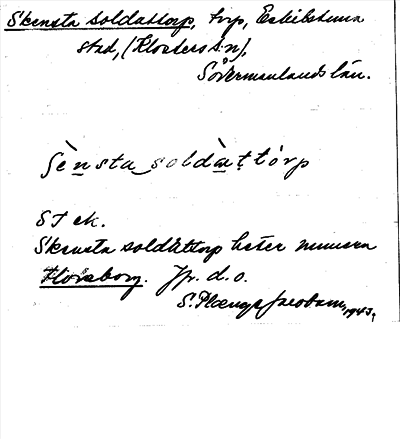 Skensta soldattorp, torp, Eskilstuna
stad, (Klosters sn),
Södermanlands län.
Sènsta soldàttórp
ST ek.
Skensta soldattorp heter numera
. Jfr. d. o.
S. Plænge Jacobson, 1943.